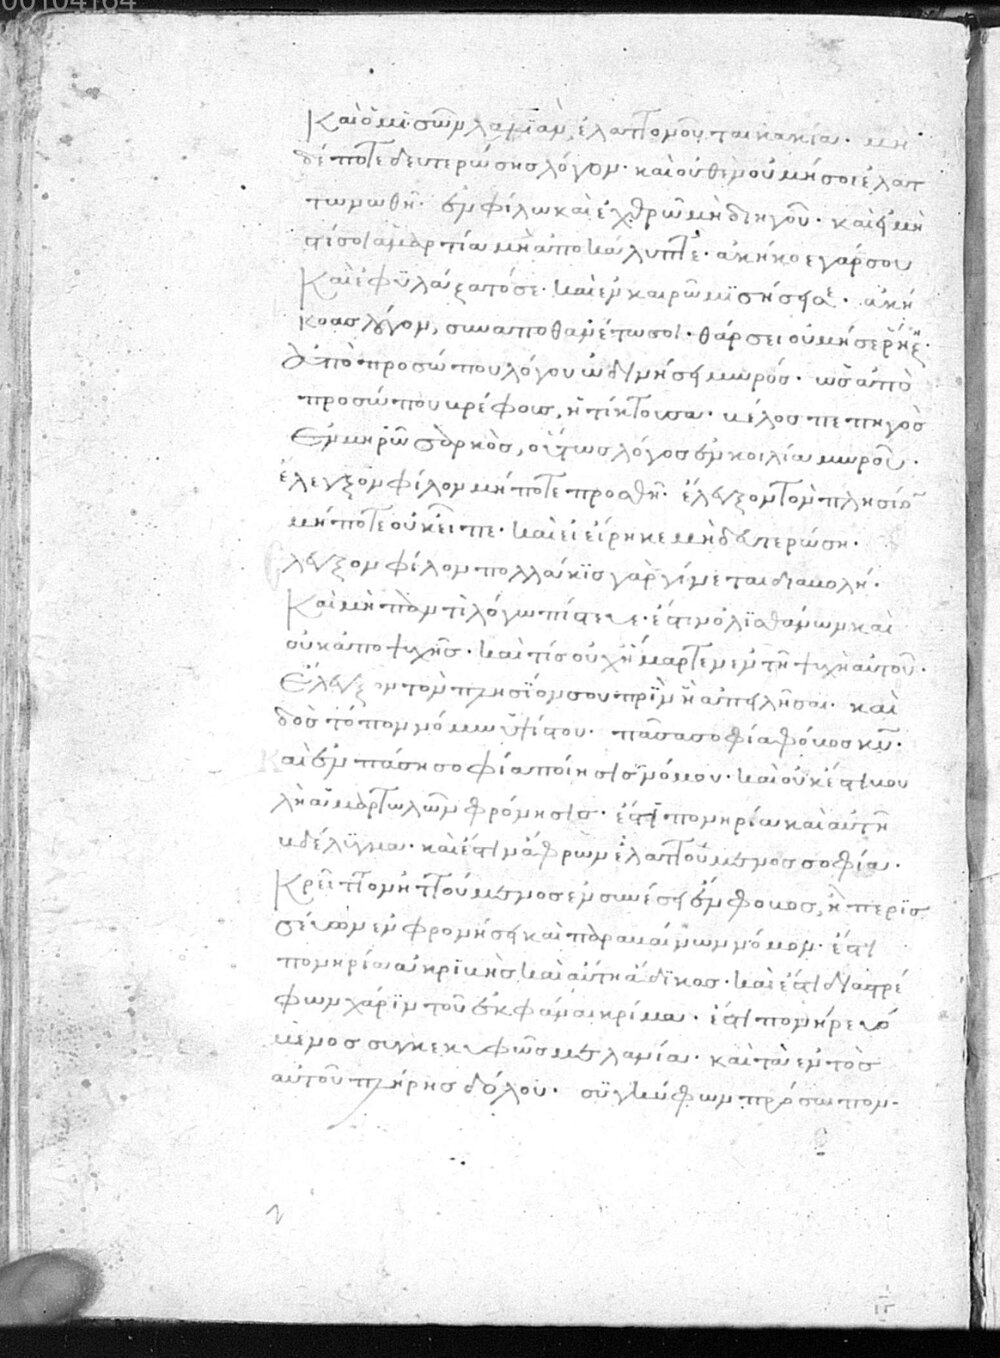 00104164
Καὶ ὁ μισῶν λαλιὰν, ἐλαττονοῦται κακία. μη
δέποτε δευτερώσῃς λόγον. καὶ οὐθέν οὐ μή σοι ἐλατ
τωνωθῇ. ἐν φίλω καὶ ἐχθρῶ μὴ διηγοῦ. καὶ εἰ μή
ἐστί σοι ἁμαρτία μὴ ἀποκάλυπτε. ἀκήκοε γάρ σου
Καὶ ἐφυλάξατό σε. καὶ ἐν καιρῶ μισήσει σε. ἀκή
κοας λόγον, συναποθανέτω σοι. θάρσει οὐ μή σε ῥήξει.
Ἀπὸ προσώπου λόγου ὠδινήσει μωρός. ὡς ἀπὸ
προσώπου βρέφους, ἡ τίκτουσα. βέλος πεπηγὸς
Ἐν μηρῶ σαρκὸς, οὕτως λόγος ἐν κοιλία μωροῦ.
ἔλεγξον φίλον μήποτε προσθῆ. ἔλεγξον τὸν πλησίον
μήποτε οὐκ εἶπε. καὶ εἰ εἴρηκε μὴ δευτερώση.
λεγξον φίλον πολλάκις γὰρ γίνεται διαβολή.
Καὶ μὴ παντὶ λόγω πίστευε. ἔστιν ὀλισθάνων καὶ
οὐκ ἀπο ψυχῆς. καὶ τίς οὐχ ἥμαρτεν ἐν τῆ ψυχῆ αὐτοῦ.
Ἔλεγξον τὸν πλησίον σου πρὶν ἢ ἀπειλῆσαι. καὶ
δὸς τόπον νόμω ὑψίστου. πᾶσα σοφία φόβος κυ.
Καὶ ἐν πάση σοφία ποίησις νόμου. καὶ οὐκ ἔστι βου
λὴ ἁμαρτωλῶν φρόνησις. ἔστι πονηρία καὶ αὐτὴ
βδέλυγμα. καὶ ἔστιν ἄφρων ἐλαττούμενος σοφία.
Κρείττον ἡττούμενος ἐν συνέσει ἔμφοβος, ἢ περισ
σεύων ἐν φρονήσει καὶ παραβαίνων νόμον. ἔστι
πονηρία ἀκριβὴς καὶ αὐτη ἄδικος. καὶ ἔστι διαστρέ
φων χάριν τοῦ ἐκφάναι κρίμα. ἔστι πονηρευό
μενος συγκεκυφὼς μελανία. καὶ τὰ ἐντὸς
αὐτοῦ πλήρης δόλου. συγκύφων πρόσωπον.